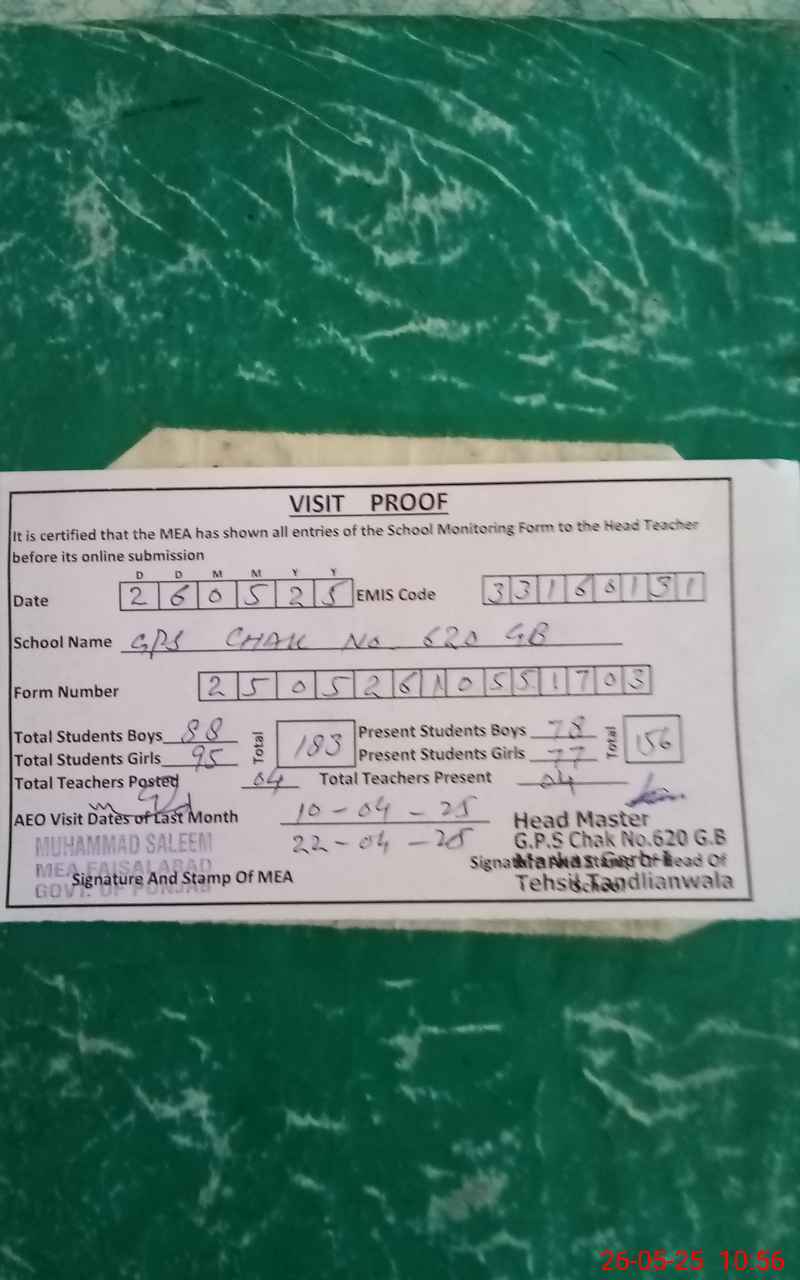 VISIT PROOF
It is certified that the MEA has shown all entries of the School Monitoring Form to the Head Teacher
before its online submission
D D M M Y Y
Date 2 6 0 5 2 5 EMIS Code 3 3 1 6 0 1 3 1
School Name GPS CHAK No. 620 GB
Form Number 2 5 0 5 2 6 1 0 5 5 1 7 0 3
Total Students Boys 88 Total 183 Present Students Boys 78 Total 156
Total Students Girls 95 Present Students Girls 77
Total Teachers Posted 04 Total Teachers Present 04
AEO Visit Dates of Last Month 10-04-25
22-04-25
MUHAMMAD SALEEM
MEA FAISALABAD
GOVT. OF PUNJAB
Signature And Stamp Of MEA
Head Master
G.P.S Chak No.620 G.B
Signature And Stamp Of Head Of
School
Tehsil Tandlianwala
26-05-25 10:56